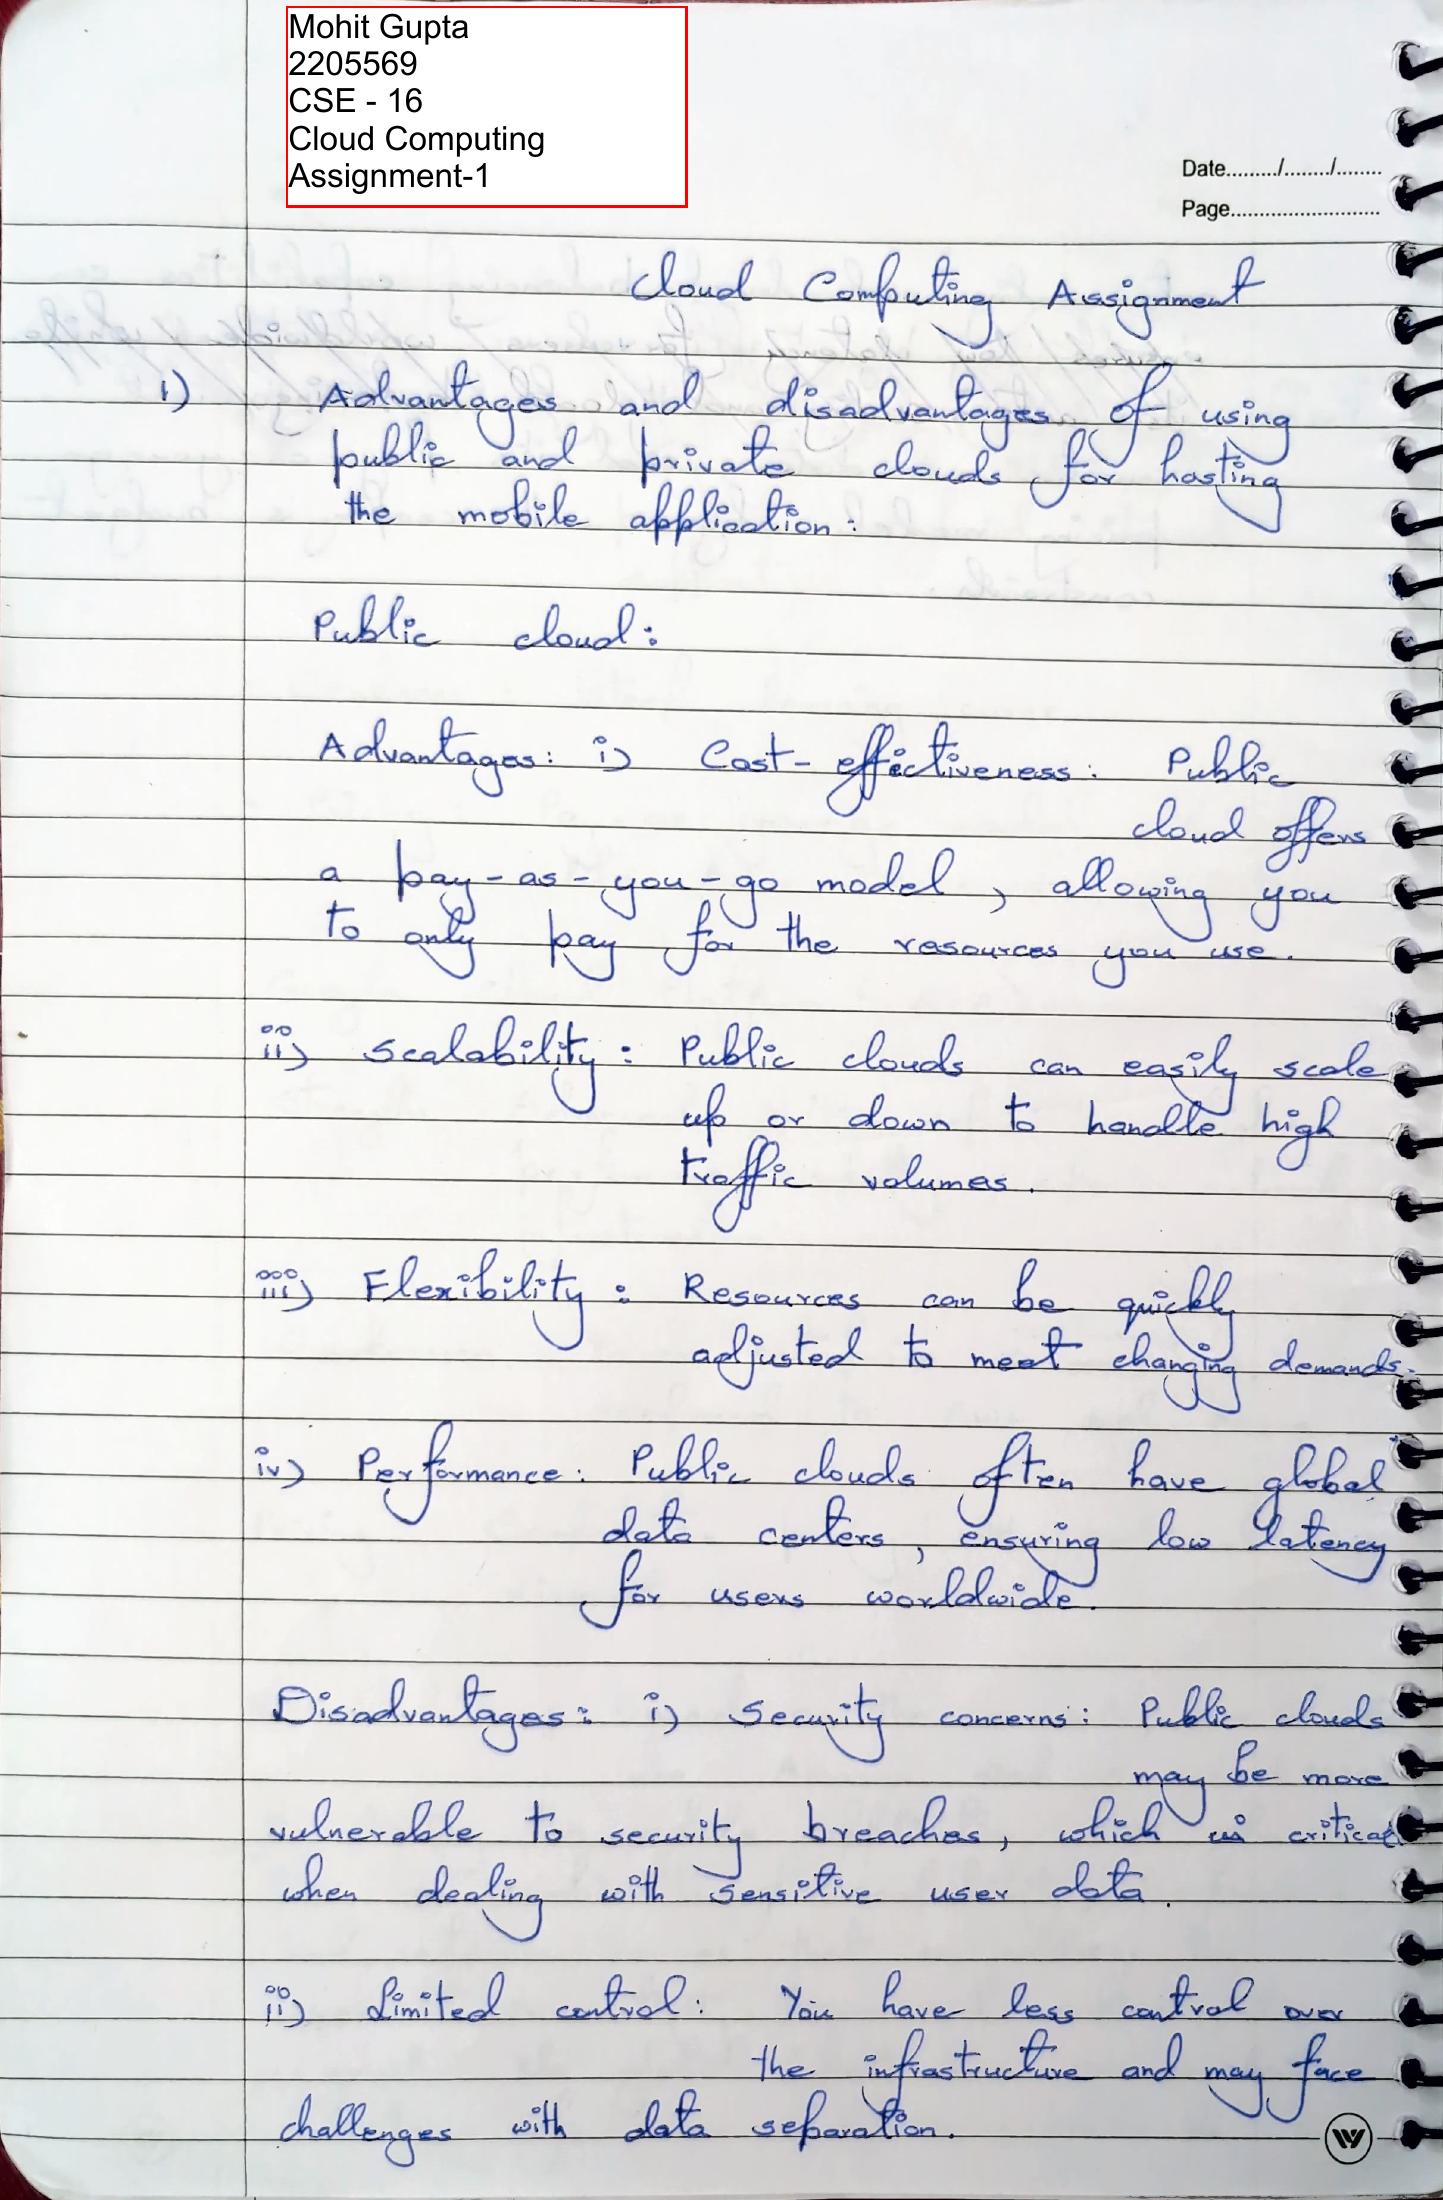 Mohit Gupta
2205569
CSE - 16
Cloud Computing
Assignment-1
Date........./......../........
Page..........................
Cloud Computing Assignment
1) Advantages and disadvantages of using
public and private clouds for hosting
the mobile application:
Public cloud:
Advantages: i) Cost-effectiveness: Public
cloud offers
a pay-as-you-go model, allowing you
to only pay for the resources you use.
ii) Scalability: Public clouds can easily scale
up or down to handle high
traffic volumes.
iii) Flexibility: Resources can be quickly
adjusted to meet changing demands.
iv) Performance: Public clouds often have global
data centers, ensuring low latency
for users worldwide.
Disadvantages: i) Security concerns: Public clouds
may be more
vulnerable to security breaches, which is critical
when dealing with sensitive user data.
ii) Limited control: You have less control over
the infrastructure and may face
challenges with data separation.
W